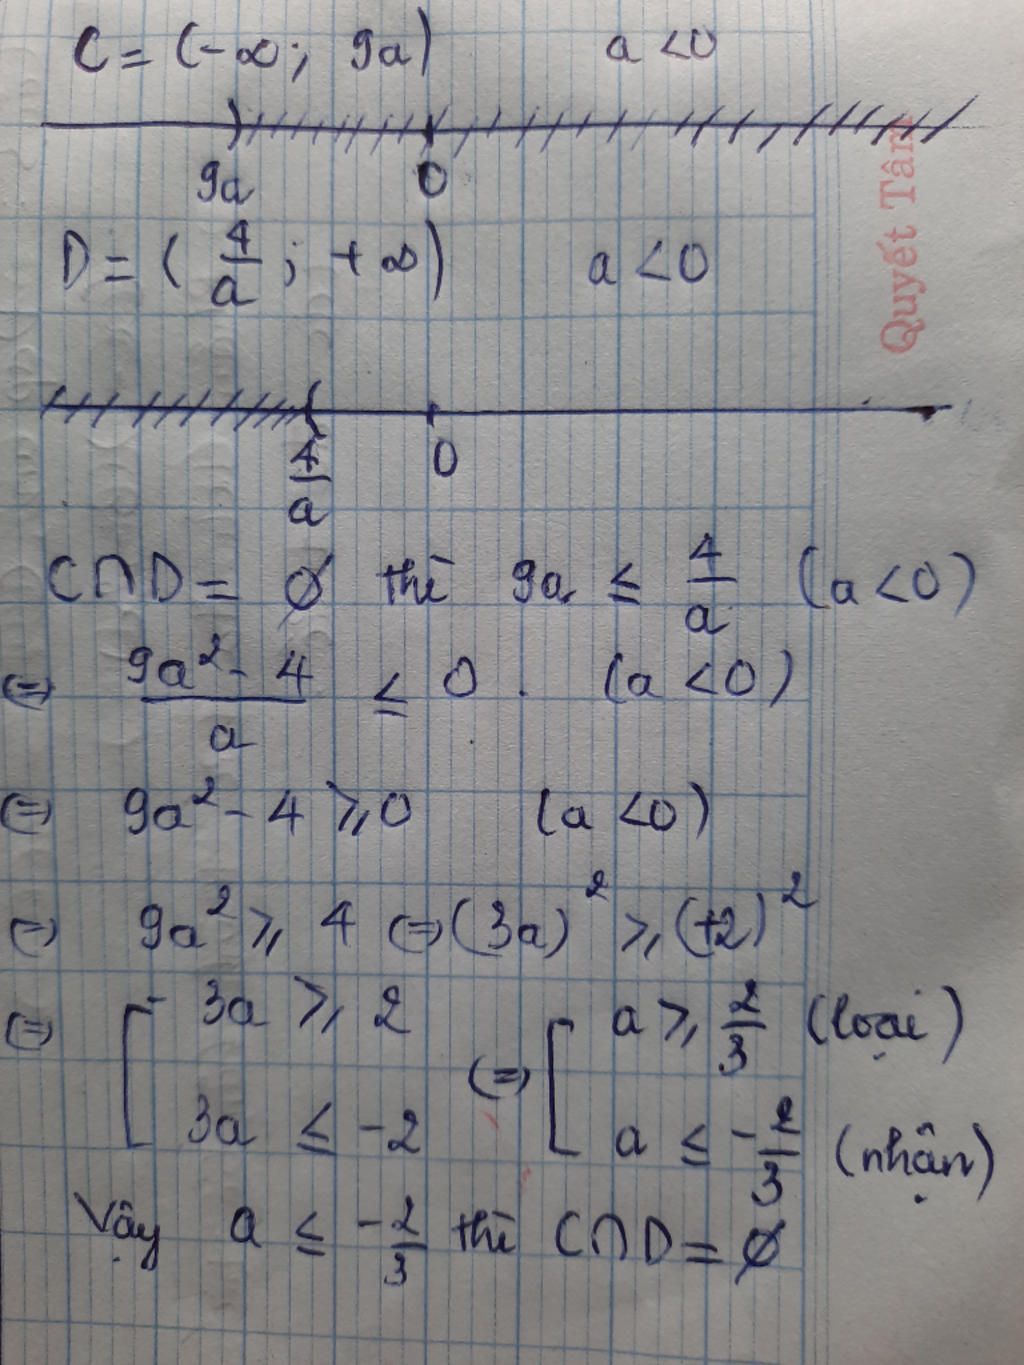 C = (-∞; 9a) a < 0
9a 0
Quyết Tâm
D = (4/a; +∞) a < 0
4/a 0
C∩D = ∅ thì 9a ≤ 4/a (a < 0)
(=) (9a² - 4)/a ≤ 0. (a < 0)
(=) 9a² - 4 ≥ 0 (a < 0)
(=) 9a² ≥ 4 (=) (3a)² ≥ (±2)²
(=) [ 3a ≥ 2 (=) [ a ≥ 2/3 (loại)
3a ≤ -2 a ≤ -2/3 (nhận)
Vậy a ≤ -2/3 thì C∩D = ∅